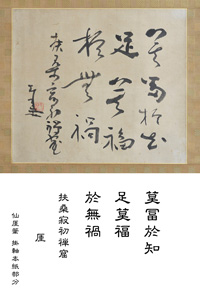 莫冨於知
足莫福
於無禍
扶桑寂初禅窟
厓
莫冨於知
足莫福
於無禍
扶桑寂初禅窟
厓
仙厓筆 掛軸本紙部分